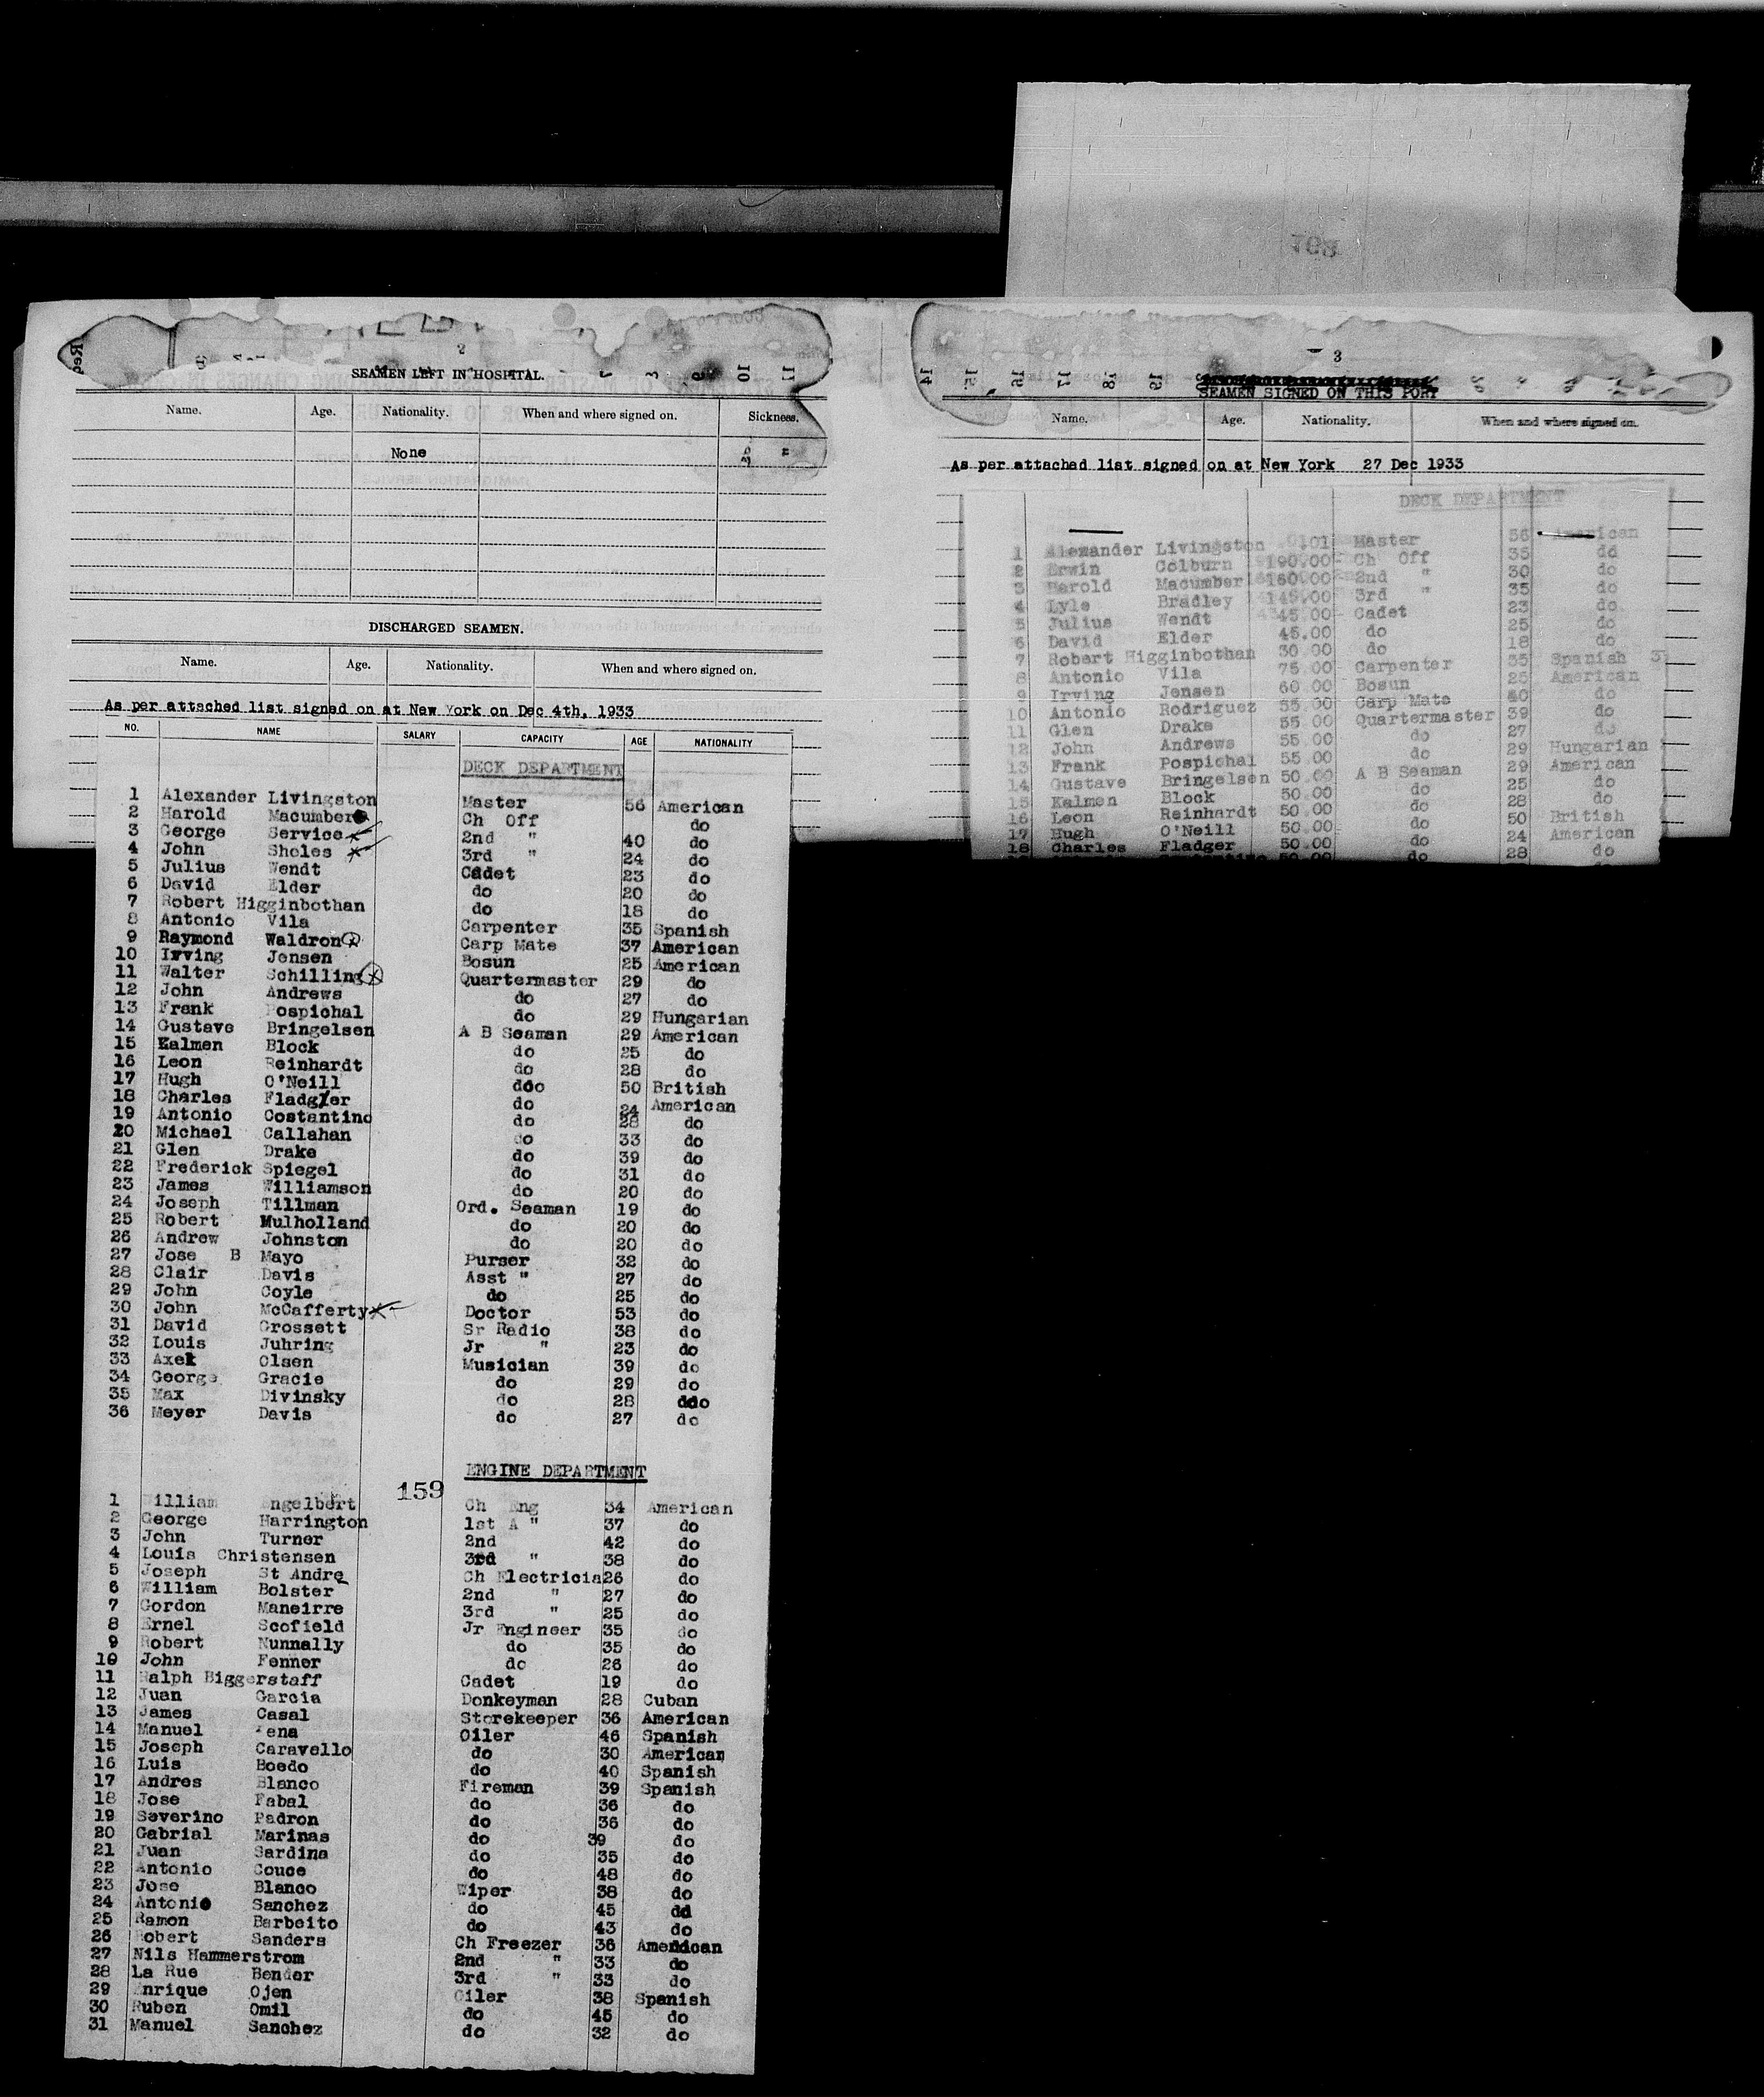 708
2
SEAMEN LEFT IN HOSPITAL.
Name. Age. Nationality. When and where signed on. Sickness.
None
DISCHARGED SEAMEN.
Name. Age. Nationality. When and where signed on.
As per attached list signed on at New York on Dec 4th, 1933
NO. NAME SALARY CAPACITY AGE NATIONALITY
DECK DEPARTMENT
1 Alexander Livingston Master 56 American
2 Harold Macumber Ch Off do
3 George Service 2nd " 40 do
4 John Sholes 3rd " 24 do
5 Julius Wendt Cadet 23 do
6 David Elder do 20 do
7 Robert Higginbothan do 18 do
8 Antonio Vila Carpenter 35 Spanish
9 Raymond Waldron Carp Mate 37 American
10 Irving Jensen Bosun 25 American
11 Walter Schilling Quartermaster 29 do
12 John Andrews do 27 do
13 Frank Pospichal do 29 Hungarian
14 Gustave Bringelsen A B Seaman 29 American
15 Kalmen Block do 25 do
16 Leon Reinhardt do 28 do
17 Hugh O'Neill ddo 50 British
18 Charles Fladgler do 24 American
19 Antonio Costantino do 28 do
20 Michael Callahan do 33 do
21 Glen Drake do 39 do
22 Frederick Spiegel do 31 do
23 James Williamson do 20 do
24 Joseph Tillman Ord. Seaman 19 do
25 Robert Mulholland do 20 do
26 Andrew Johnston do 20 do
27 Jose B Mayo Purser 32 do
28 Clair Davis Asst " 27 do
29 John Coyle do 25 do
30 John McCafferty Doctor 53 do
31 David Grossett Sr Radio 38 do
32 Louis Juhring Jr " 23 do
33 Axel Olsen Musician 39 do
34 George Gracie do 29 do
35 Max Divinsky do 28 ddo
36 Meyer Davis do 27 do
ENGINE DEPARTMENT
159
1 William Engelbert Ch Eng 34 American
2 George Harrington 1st A " 37 do
3 John Turner 2nd 42 do
4 Louis Christensen 3rd " 38 do
5 Joseph St Andre Ch Electricia 26 do
6 William Bolster 2nd " 27 do
7 Gordon Maneirre 3rd " 25 do
8 Ernel Scofield Jr Engineer 35 do
9 Robert Nunnally do 35 do
10 John Fenner do 26 do
11 Ralph Biggerstaff Cadet 19 do
12 Juan Garcia Donkeyman 28 Cuban
13 James Casal Storekeeper 36 American
14 Manuel Pena Oiler 46 Spanish
15 Joseph Caravello do 30 American
16 Luis Boedo do 40 Spanish
17 Andres Blanco Fireman 39 Spanish
18 Jose Fabal do 36 do
19 Severino Padron do 36 do
20 Gabrial Marinas do 39 do
21 Juan Sardina do 35 do
22 Antonio Couce do 48 do
23 Jose Blanco Wiper 38 do
24 Antonio Sanchez do 45 dd
25 Ramon Barbeito do 43 do
26 Robert Sanders Ch Freezer 36 American
27 Nils Hammerstrom 2nd " 33 do
28 La Rue Bender 3rd " 33 do
29 Enrique Ojen Oiler 38 Spanish
30 Ruben Omil do 45 do
31 Manuel Sanchez do 32 do
3
SEAMEN SIGNED ON THIS PORT
Name. Age. Nationality. When and where signed on.
As per attached list signed on at New York 27 Dec 1933
DECK DEPARTMENT
1 Alexander Livingston Master 56 American
2 Erwin Colburn 190.00 Ch Off 35 do
3 Harold Macumber 160.00 2nd " 30 do
4 Lyle Bradley 145.00 3rd " 35 do
5 Julius Wendt 45.00 Cadet 23 do
6 David Elder 45.00 do 25 do
7 Robert Higginbothan 30.00 do 18 do
8 Antonio Vila 75.00 Carpenter 35 Spanish
9 Irving Jensen 60.00 Bosun 25 American
10 Antonio Rodriguez 55.00 Carp Mate 40 do
11 Glen Drake 55.00 Quartermaster 39 do
12 John Andrews 55.00 do 27 do
13 Frank Pospichal 55.00 do 29 Hungarian
14 Gustave Bringelsen 50.00 A B Seaman 29 American
15 Kalmen Block 50.00 do 25 do
16 Leon Reinhardt 50.00 do 28 do
17 Hugh O'Neill 50.00 do 50 British
18 Charles Fladger 50.00 do 24 American
50.00 do 28 do